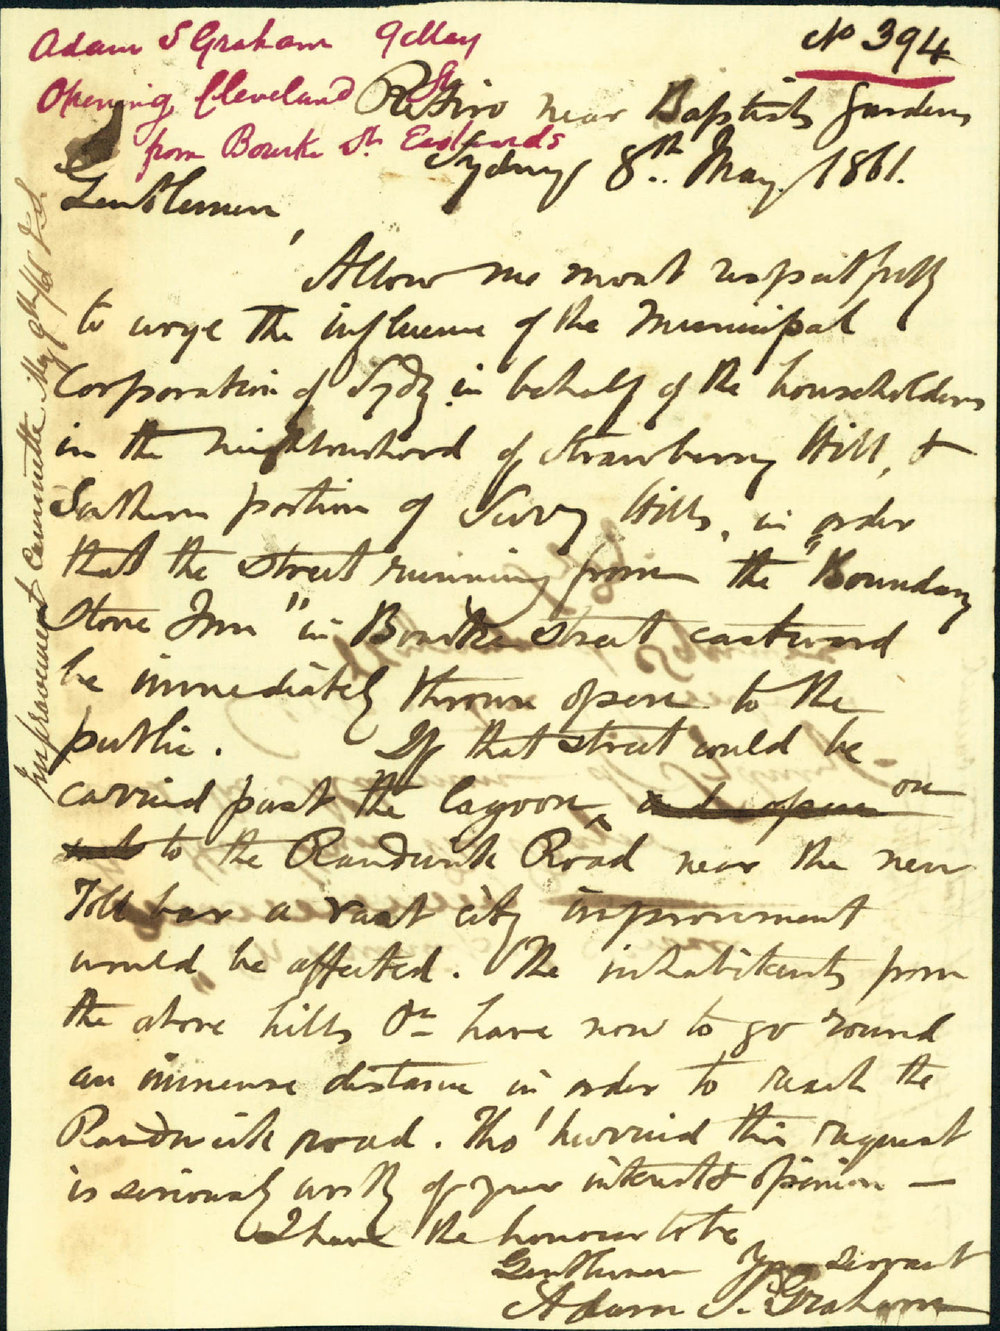 Adam S Graham 9th May
Opening Cleveland St
from Bourke St. Eastwards
No 394
Retiro near Baptists Gardens
Sydney 8th. May. 1861.
Gentlemen,
Allow me most respectfully
to urge the influence of the Municipal
Corporation of Sydy. in behalf of the householders
in the neighbourhood of Strawberry Hill, &
Southern portion of Surry Hills, in order
that the street running from the "Boundary
Stone Inn" in Bourke Street eastward
be immediately thrown open to the
public. If that street could be
carried past the lagoon, and open on
and to the Randwick Road near the new
Toll bar a vast city improvement
would be affected. The inhabitants from
the above hills have now to go round
an immense distance in order to reach the
Randwick road. Tho' hurried this request
is seriously worthy of your interest & opinion —
I have the honour to be
Gentlemen Your servant
Adam S. Graham
Improvement Committee May 9th